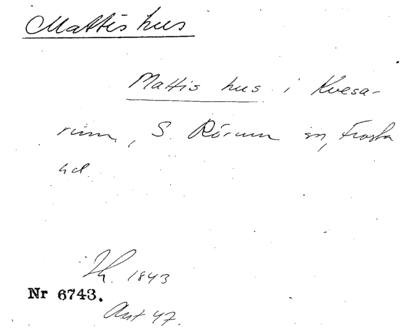 Mattis hus
Mattis hus i Kvesa-
rum, S. Rörum sn, Frosta
hd
1843
Nr 6743.
Avt 47.